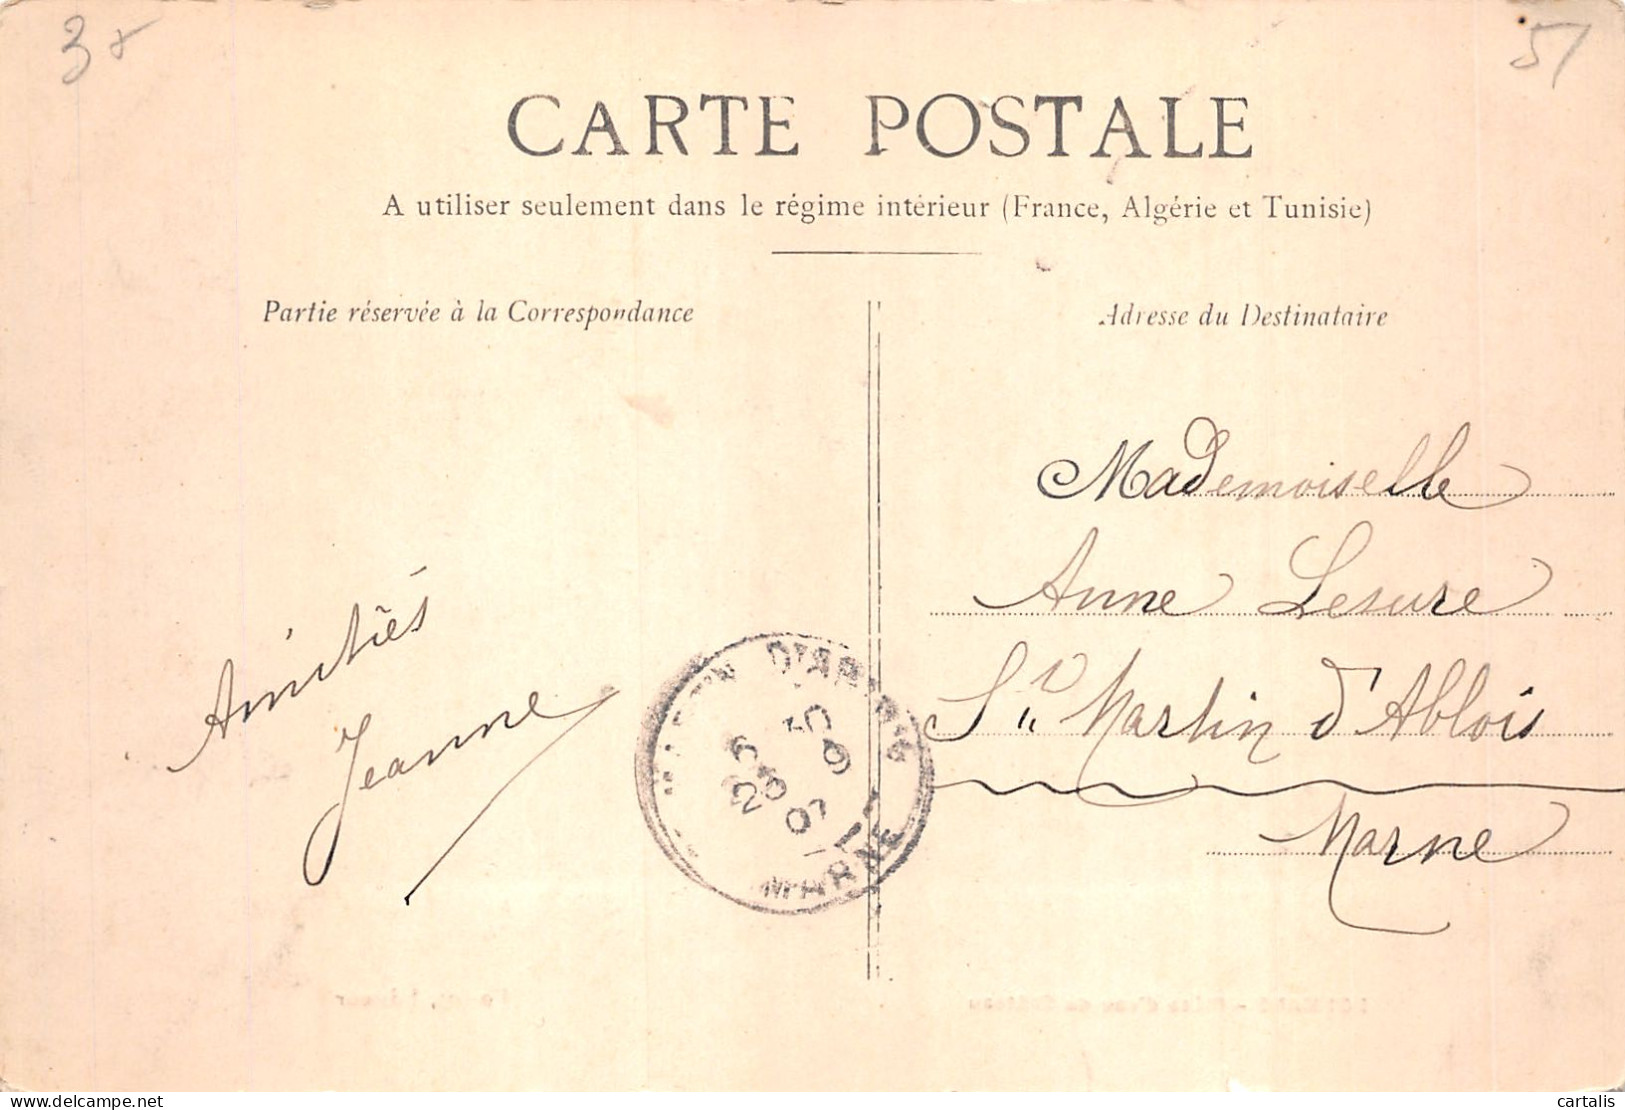 38
51
CARTE POSTALE
A utiliser seulement dans le régime intérieur (France, Algérie et Tunisie)
Partie réservée à la Correspondance
Adresse du Destinataire
Mademoiselle
Anne Lesure
St Martin d'Ablois
Marne
Amitiés
Jeanne
MARTIN D'
23 9
07
MARNE
cartalis
delcampe.net